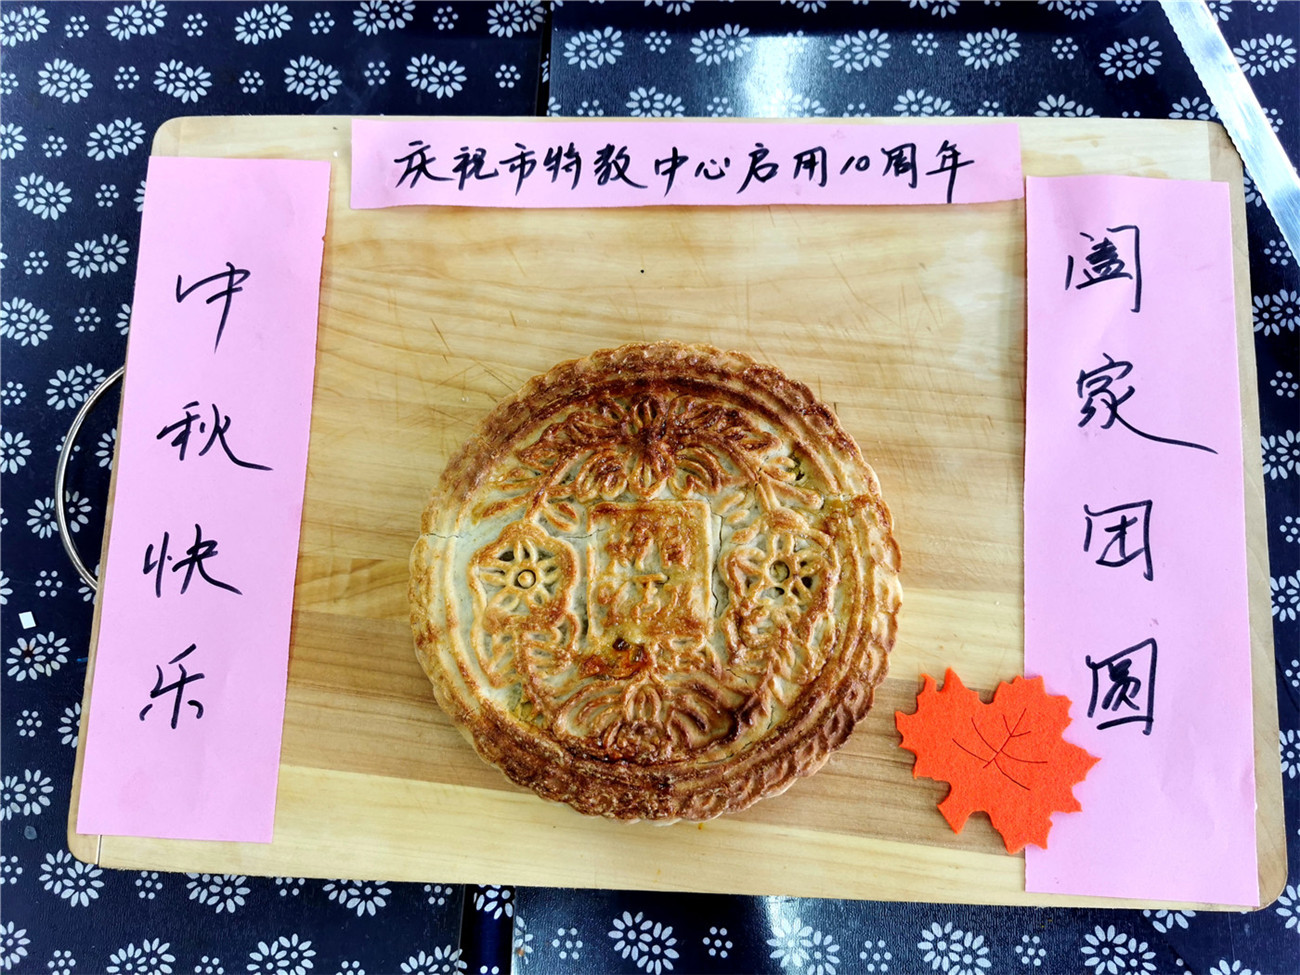 庆祝市特教中心启用10周年
中秋快乐
阖家团圆